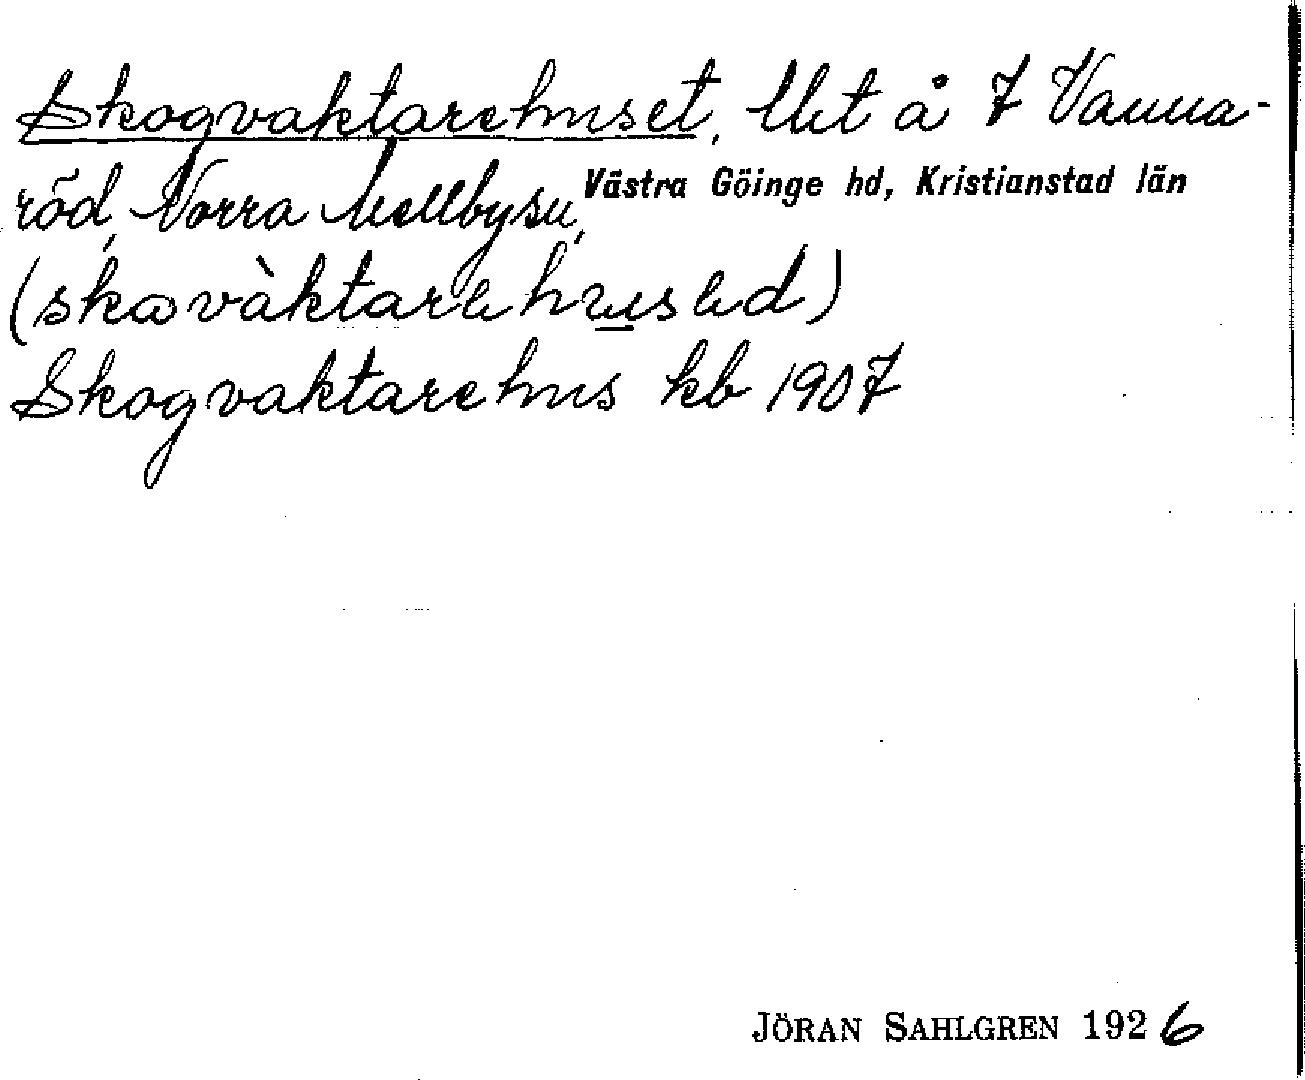 Skogvaktarehuset, lht å 7 Vanna-
röd, Norra Mellby sn, Västra Göinge hd, Kristianstad län
Skogvaktarehus kb 1907
JÖRAN SAHLGREN 1926